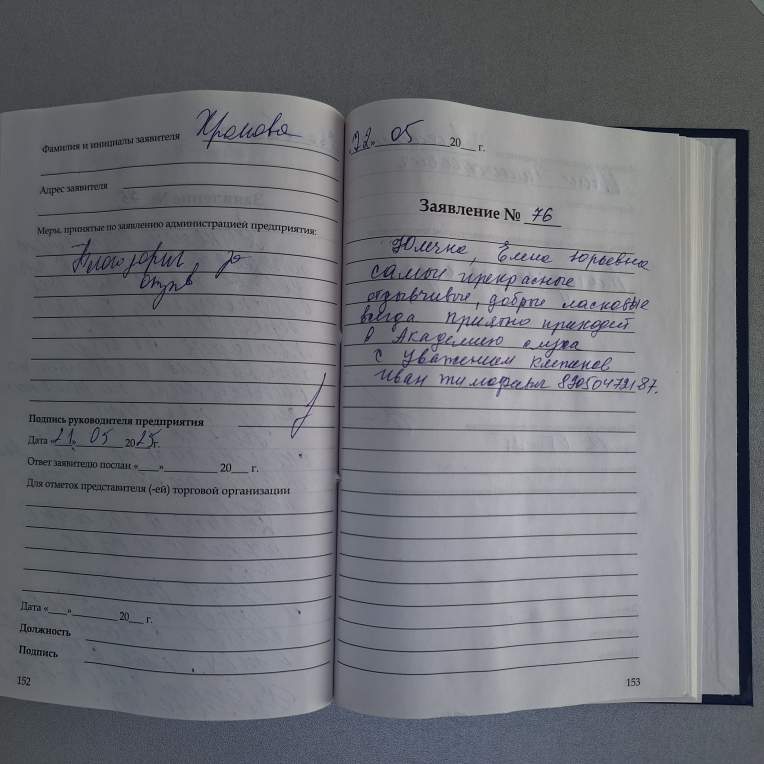 Фамилия и инициалы заявителя Храмова
Адрес заявителя
Меры, принятые по заявлению администрацией предприятия:
за
отзыв
Подпись руководителя предприятия
Дата «21» 05 2025г.
Ответ заявителю послан «___»________ 20___ г.
Для отметок представителя (-ей) торговой организации
Дата «___»________ 20___ г.
Должность
Подпись
152
22» 05 20___ г.
Заявление № 76
Юлечка, Елена Юрьевна
самые прекрасные
отзывчивые, добрые ласковые
всегда приятно приходить
в Академию слуха
с уважением
Иван 89050472187.
153